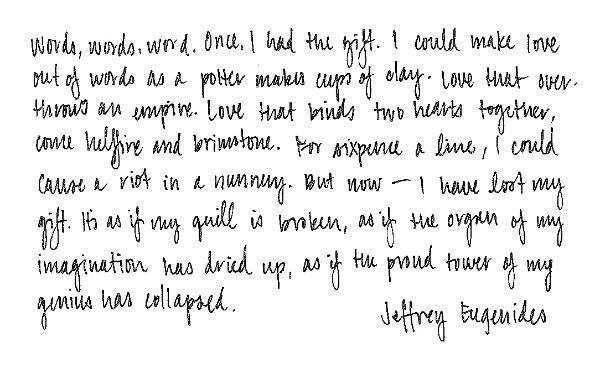 Words, words, word. Once, I had the gift. I could make love
out of words as a potter makes cups of clay. Love that over-
throws an empire. Love that binds two hearts together,
come hellfire and brimstone. For sixpence a line, I could
cause a riot in a nunnery. But now — I have lost my
gift. It's as if my quill is broken, as if the organ of my
imagination has dried up, as if the proud tower of my
genius has collapsed.
Jeffrey Eugenides